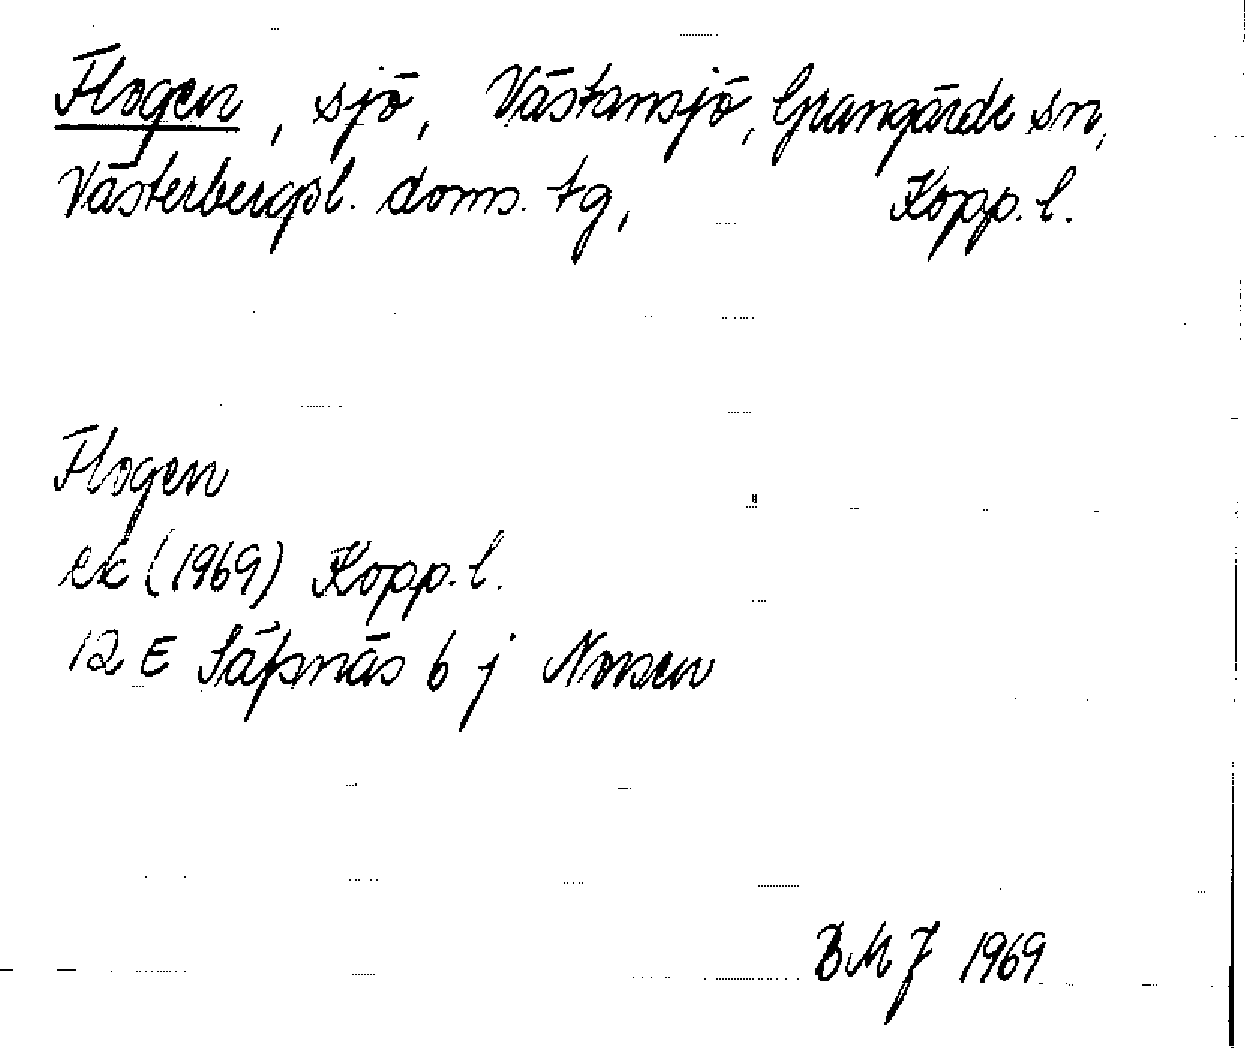 Flogen, sjö, Västansjö, Grangärde sn,
Västerbergsl. doms. tg, Kopp. l.
Flogen
ek (1969) Kopp. l.
12 E Säfsnäs 6 j Norsen
BMJ 1969